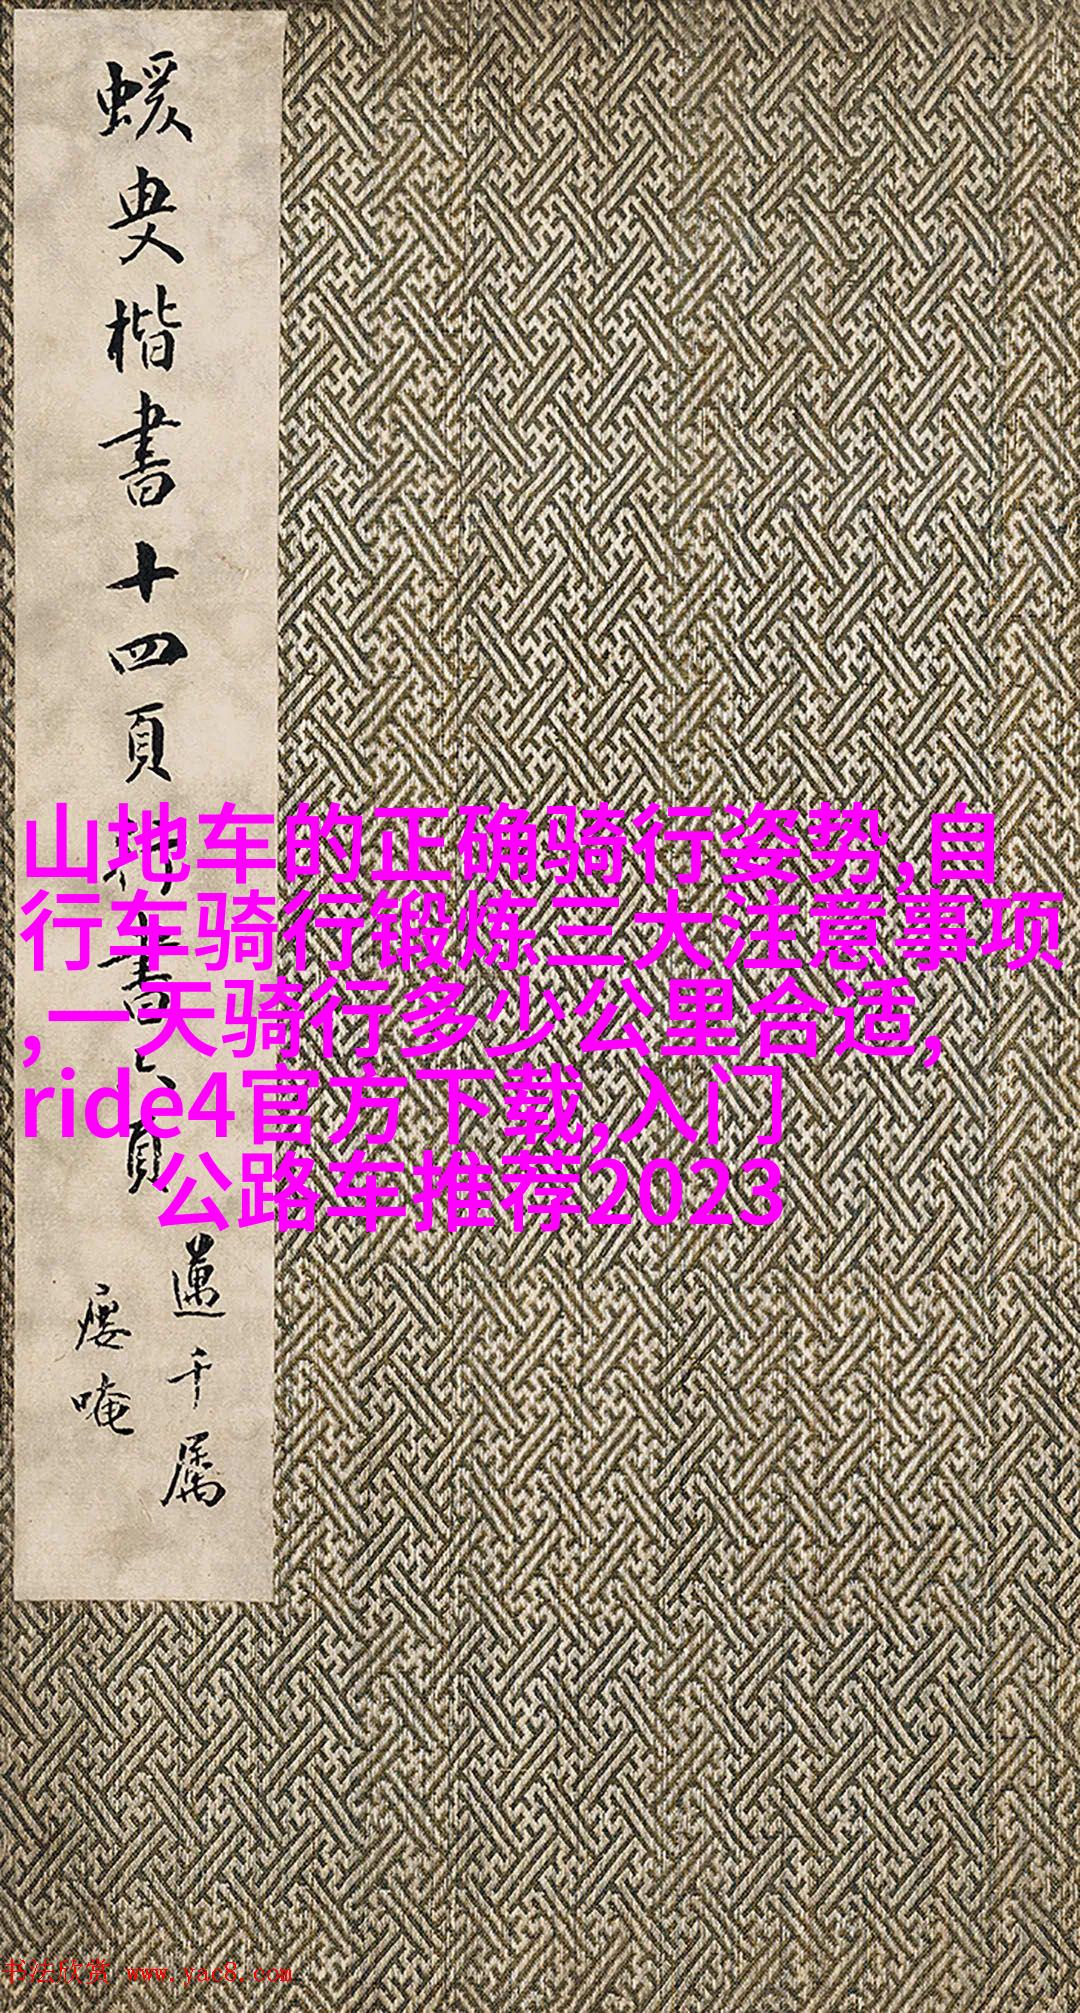 蝯叟楷書十四頁
山地车的正确骑行姿势,自
行车骑行锻炼三大注意事项
,一天骑行多少公里合适,
ride4官方下载,入门
公路车推荐2023
千
书法欣赏 www.yac8.com